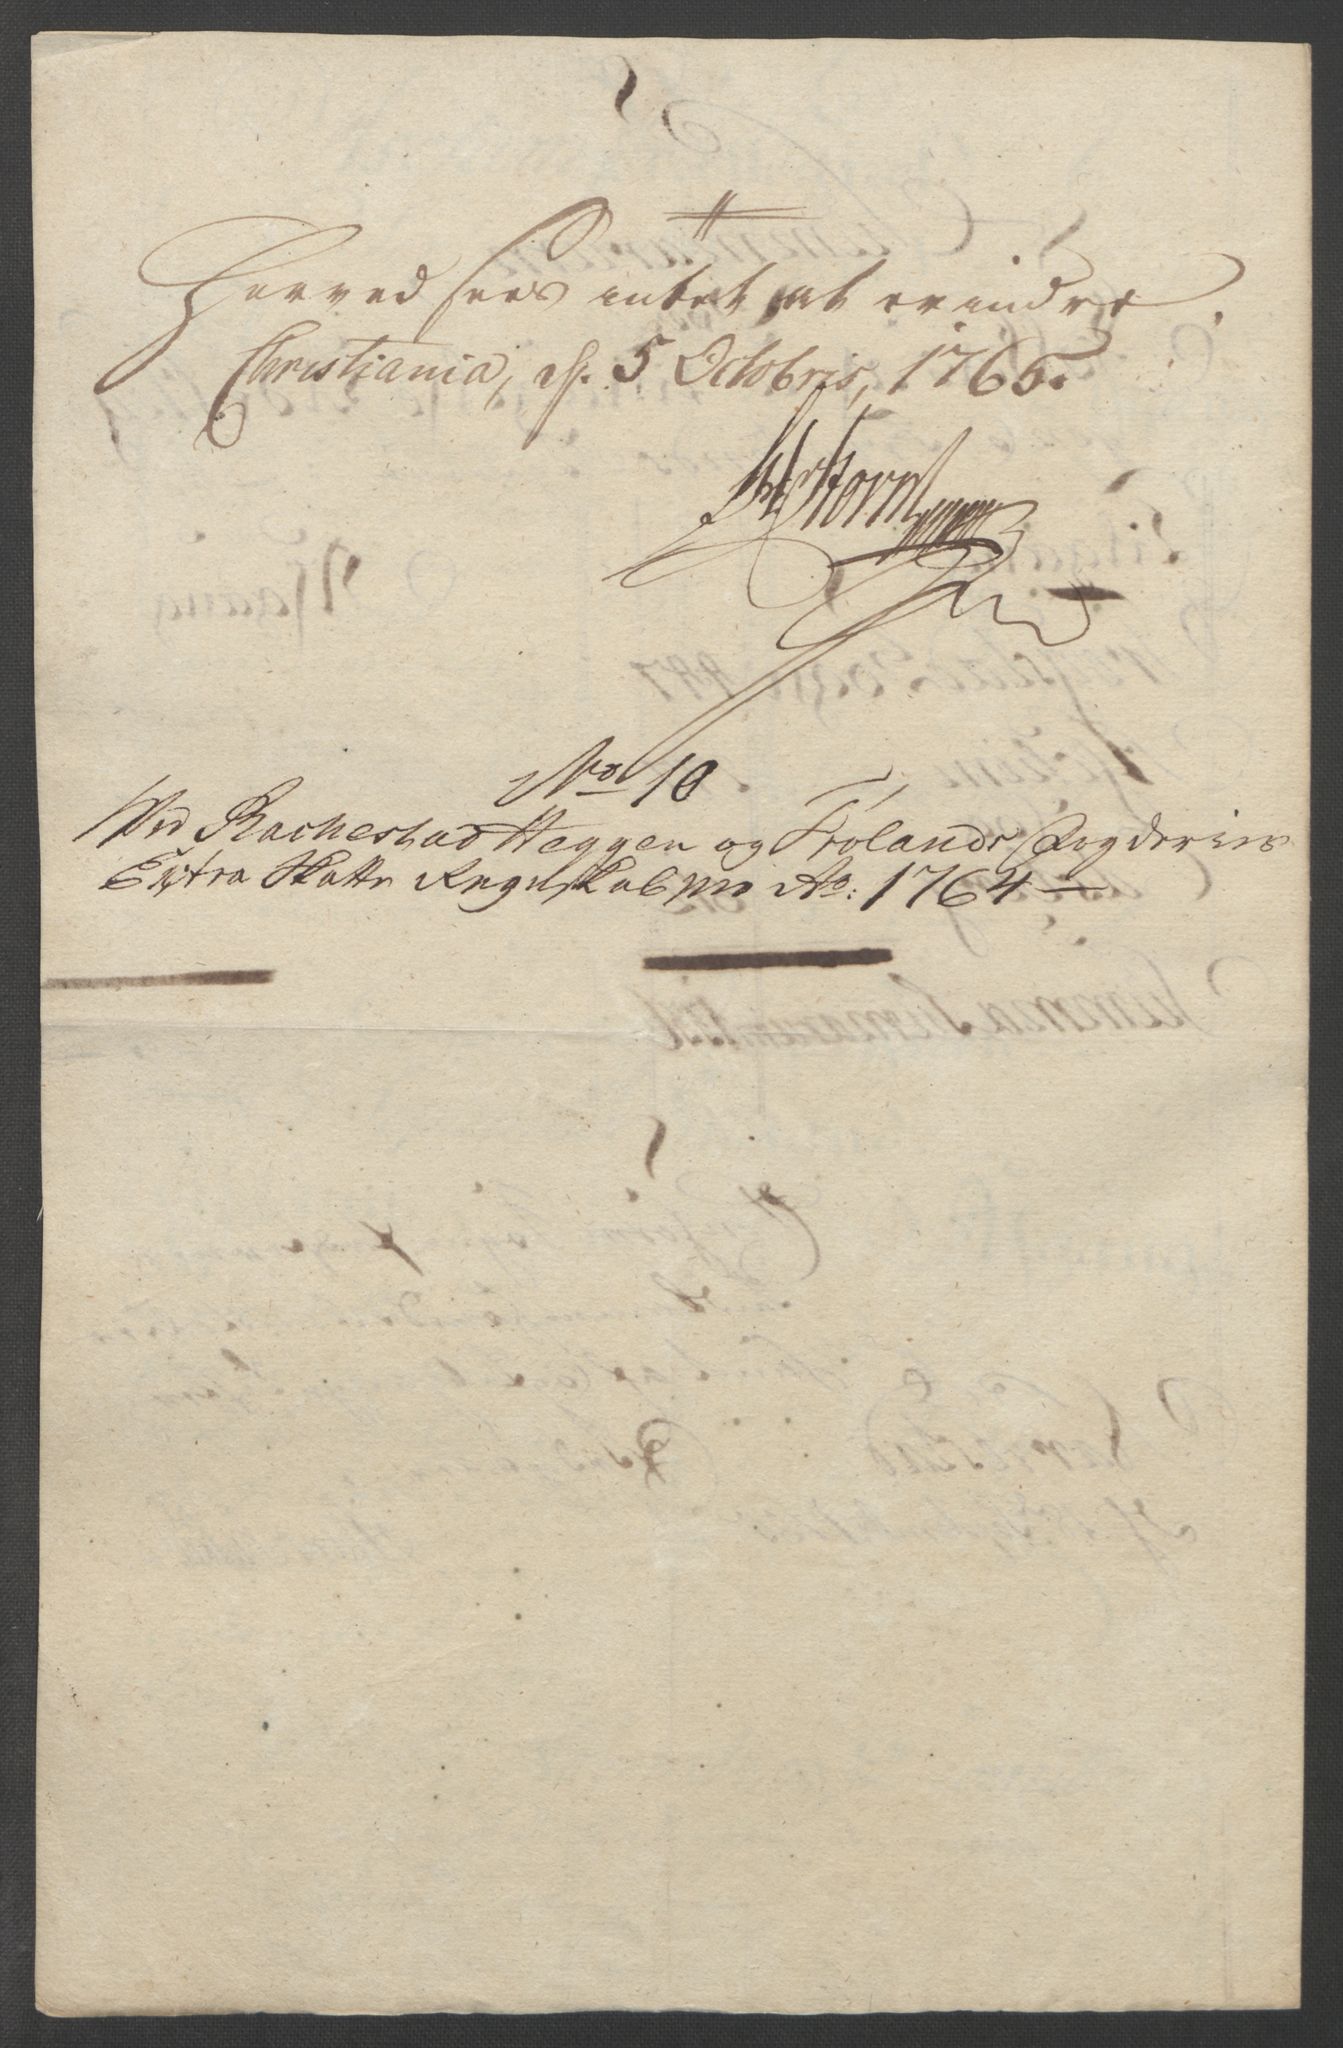 Herved sees intet at erindre.
Christiania, d. 5 Octobris, 1765.
Storm
No 10
Ved Rachestad Heggen og Frølands Fogderies
Extra Skatte Regnskab pro Ao: 1764